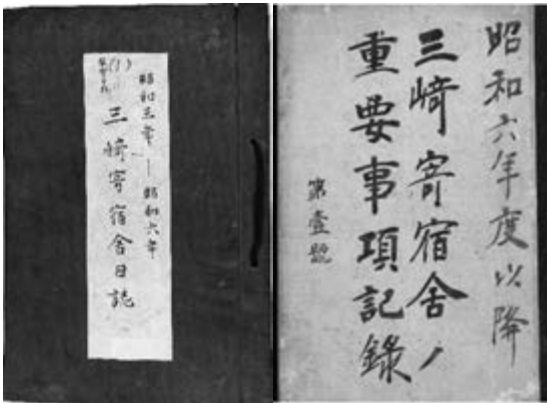 昭和三年—昭和六年
(1)
三崎寄宿舎日誌
昭和六年度以降
三崎寄宿舎ノ
重要事項記錄
第壹號